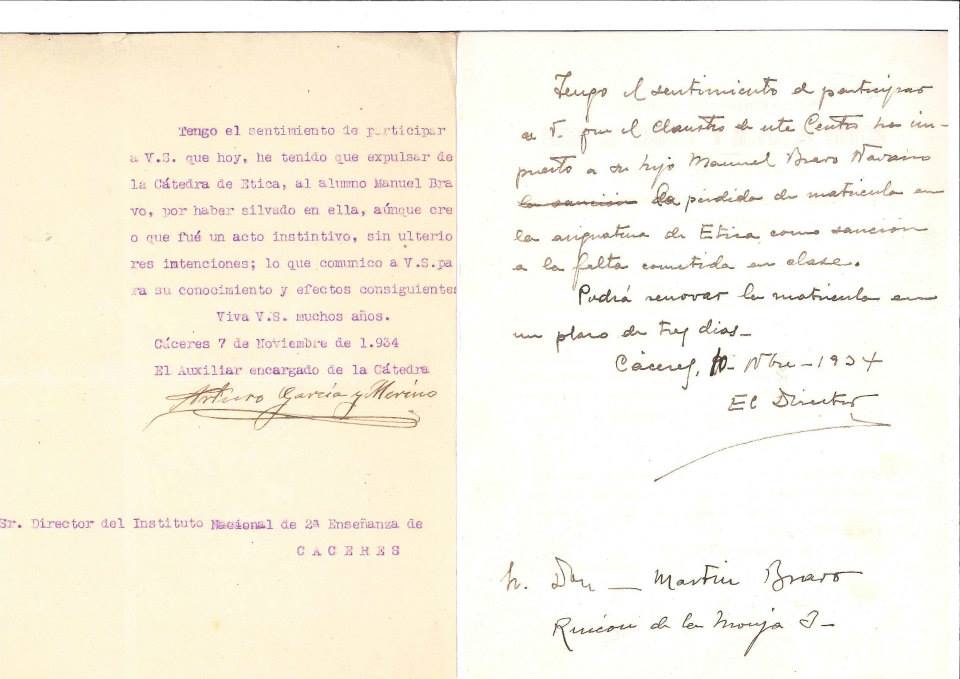 Tengo el sentimiento de participar
a V.S. que hoy, he tenido que expulsar de
la Cátedra de Etica, al alumno Manuel Bra
vo, por haber silvado en ella, aúnque cre
o que fué un acto instintivo, sin ulterio
res intenciones; lo que comunico a V.S.pa
ra su conocimiento y efectos consiguientes
Viva V.S. muchos años.
Cáceres 7 de Noviembre de 1.934
El Auxiliar encargado de la Cátedra
Arturo García y Merino
Sr. Director del Instituto Nacional de 2ª Enseñanza de
C A C E R E S
Tengo el sentimiento de participar
a V. que el Claustro de este Centro ha im-
puesto a su hijo Manuel Bravo Navarro
la sanción la pérdida de matrícula en
la asignatura de Etica como sanción
a la falta cometida en clase.
Podrá renovar la matrícula en
un plazo de tres dias-
Cáceres, 10 - Nbre - 1934
El Director
Sr. Don - Martín Bravo
Rincón de la Monja